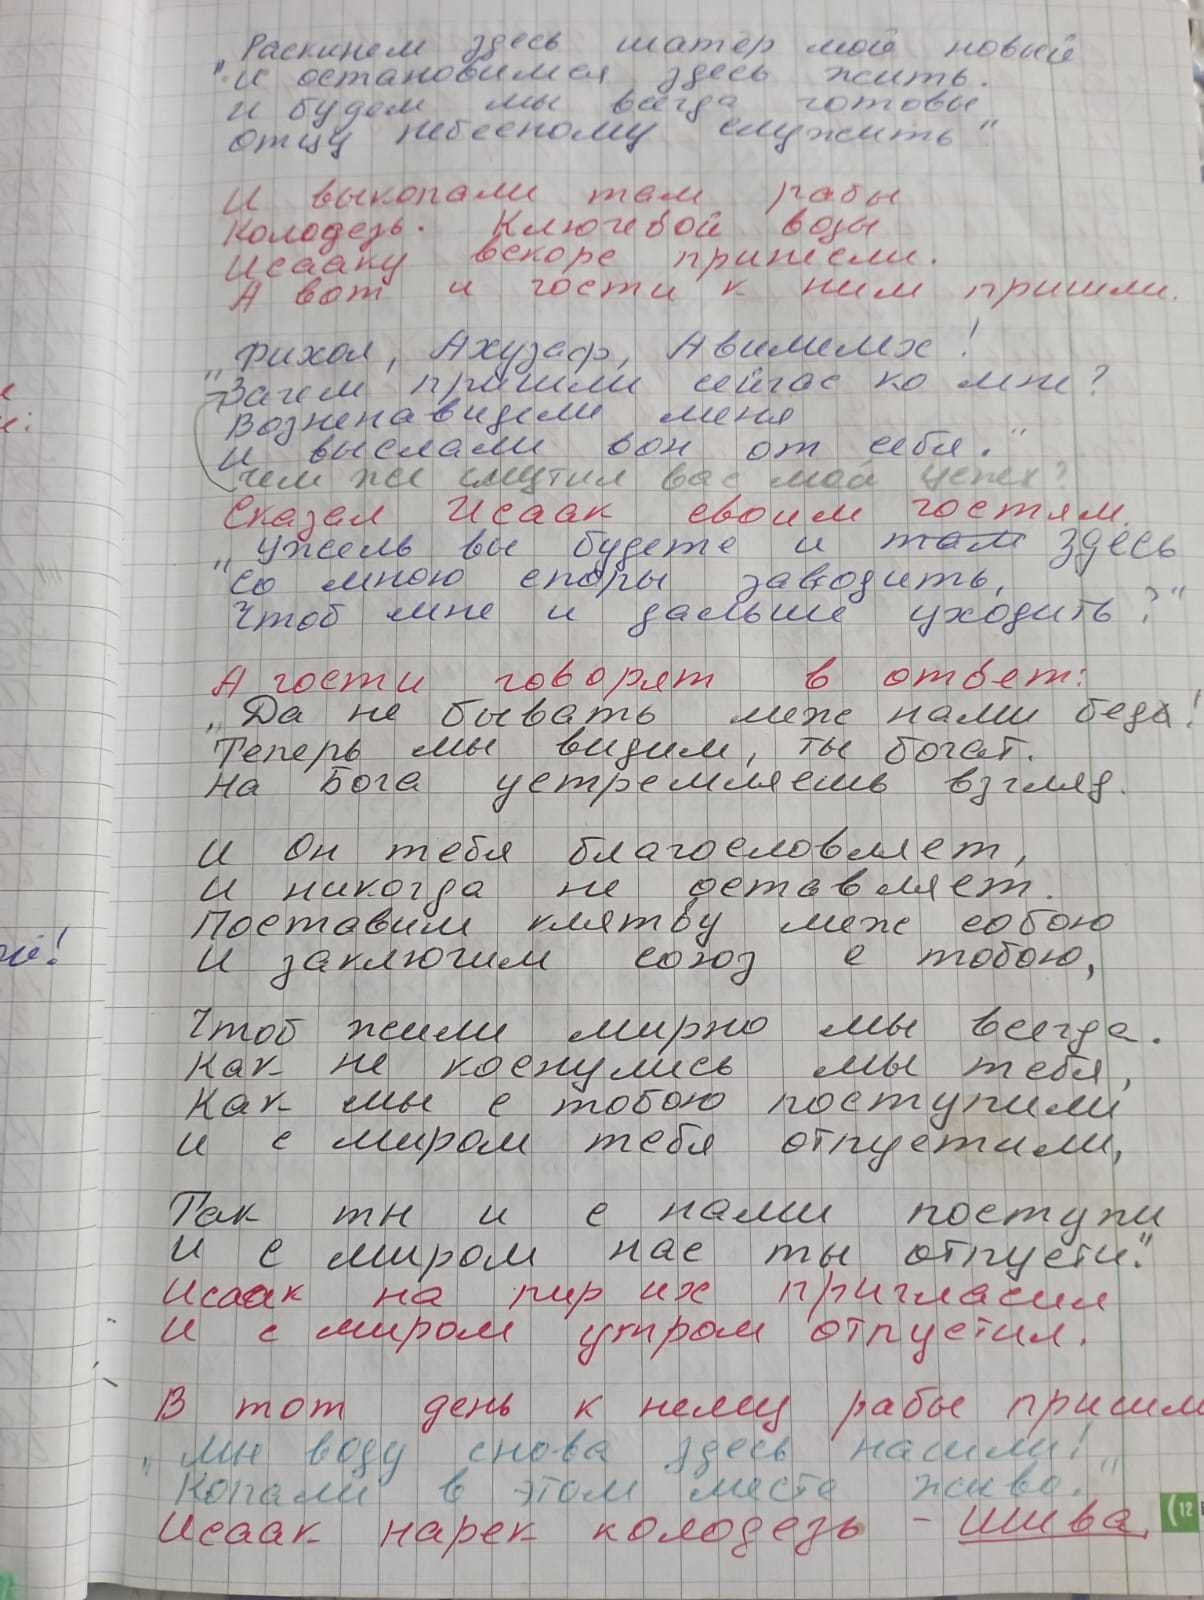 Раскинем здесь шатер мой новый
"И остановимся здесь жить.
И будем мы всегда готовы
Отцу небесному служить"
И выкопали там рабы
Колодезь. Ключевой воды
Исааку вскоре принесли.
А вот и гости к ним пришли.
„Фихол, Ахузаф, Авимелех!
Зачем пришли сейчас ко мне?
Возненавидели меня
И выслали вон от себя."
Чем же смутил вас мой успех?
Сказал Исаак своим гостям.
„Ужель вы будете и там здесь
Со мною споры заводить,
Чтоб мне и дальше уходить?"
А гости говорят в ответ:
„Да не бывать меж нами бед!
Теперь мы видим, ты богат.
На Бога устремляешь взгляд.
И Он тебя благословляет,
И никогда не оставляет.
Поставим клятву меж собою
И заключим союз с тобою,
Чтоб жили мирно мы всегда.
Как не коснулись мы тебя,
Как мы с тобою поступили
И с миром тебя отпустили,
Так ты и с нами поступи
И с миром нас ты отпусти."
Исаак на пир их пригласил
И с миром утром отпустил.
В тот день к нему рабы пришли
„Мы воду снова здесь нашли!
Копали в этом месте живо."
Исаак нарек колодезь - Шива
(12